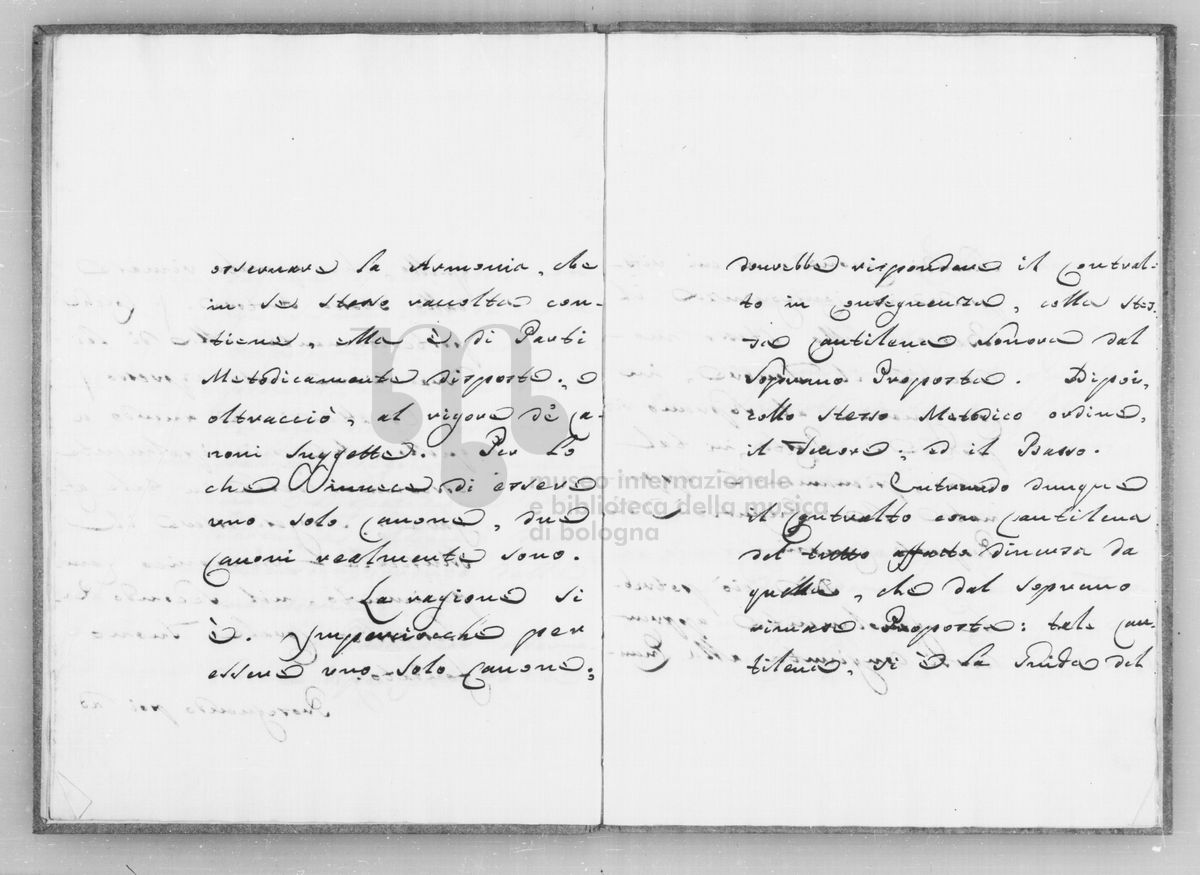 osservare la Armonia, che
in se stesso raccolta con-
tiene, ella è di Parti
Metodicamente disposte, e
oltracciò, al rigore dè Ca-
noni suggette. Per lo
che invece di essere
uno solo Canone, due
Canoni realmente sono.
La ragione si
è. Imperciocchè per
essere uno solo Canone,
dourebbe rispondere il Contral-
to in Conseguenza, colla stes-
sa Cantilena dal
Soprano Proposta. Dipoi,
collo stesso Metodico ordine,
il Tenore, ed il Basso.
Entrando dunque
il Contralto con Cantilena
del tutto affatto diversa da
quella, che dal soprano
rimase Proposta: tale Can-
tilena, si è la Guida del
museo internazionale
e biblioteca della musica
di bologna